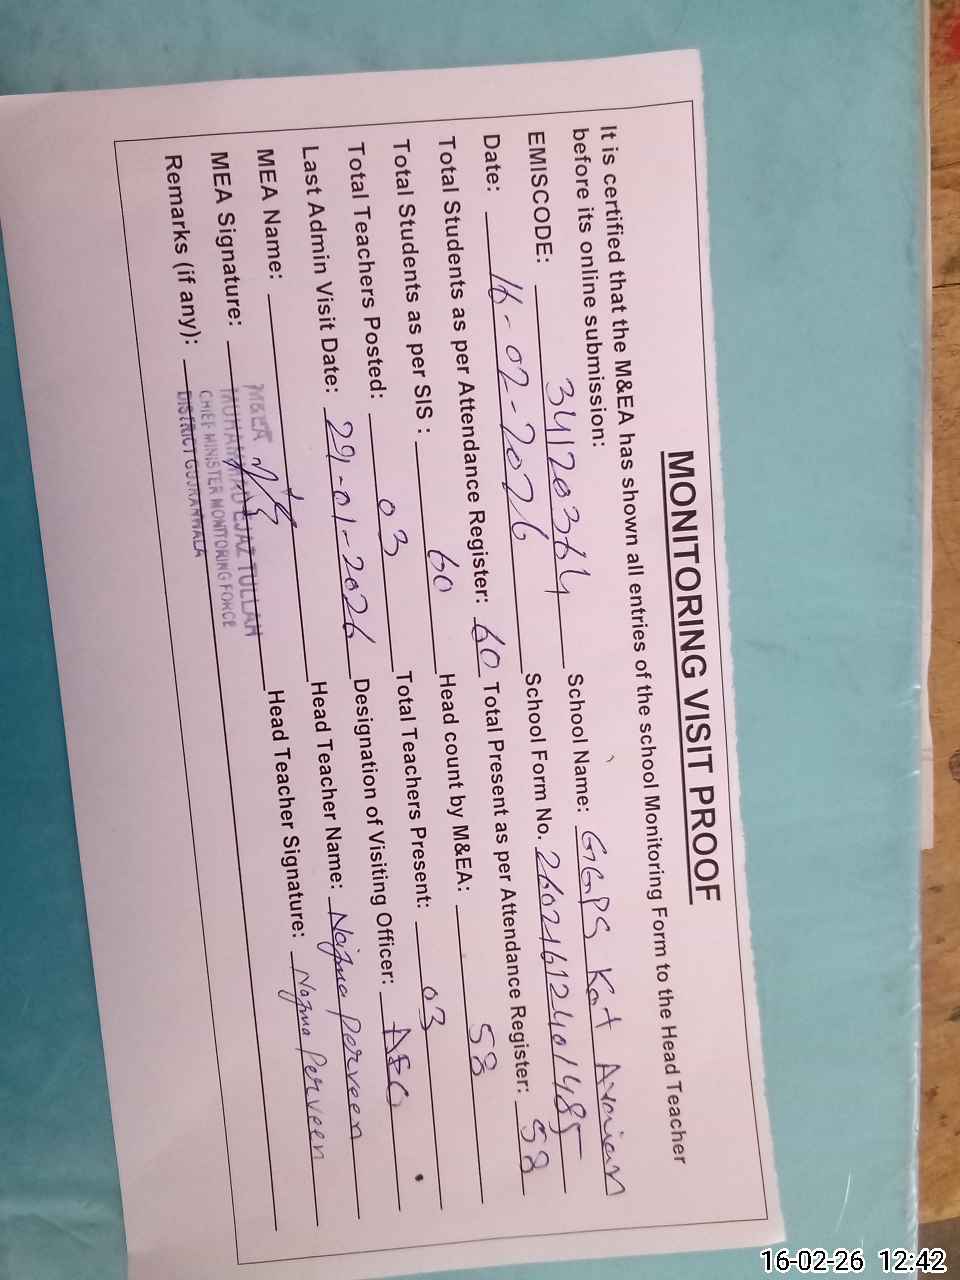 MONITORING VISIT PROOF
It is certified that the M&EA has shown all entries of the school Monitoring Form to the Head Teacher
before its online submission:
EMISCODE: 34120364 School Name: GGPS Kot Avaian
Date: 16-02-2026 School Form No. 26021612401485
Total Students as per Attendance Register: 60 Total Present as per Attendance Register: 58
Total Students as per SIS : 60 Head count by M&EA: 58
Total Teachers Posted: 03 Total Teachers Present: 03
Last Admin Visit Date: 29-01-2026 Designation of Visiting Officer: AEO
MEA Name: Head Teacher Name: Najma Perveen
MEA Signature: Head Teacher Signature: Najma Perveen
Remarks (if any):
M&EA
MUHAMMAD EJAZ TULLAH
CHIEF MINISTER MONITORING FORCE
DISTRICT GUJRANWALA
16-02-26 12:42